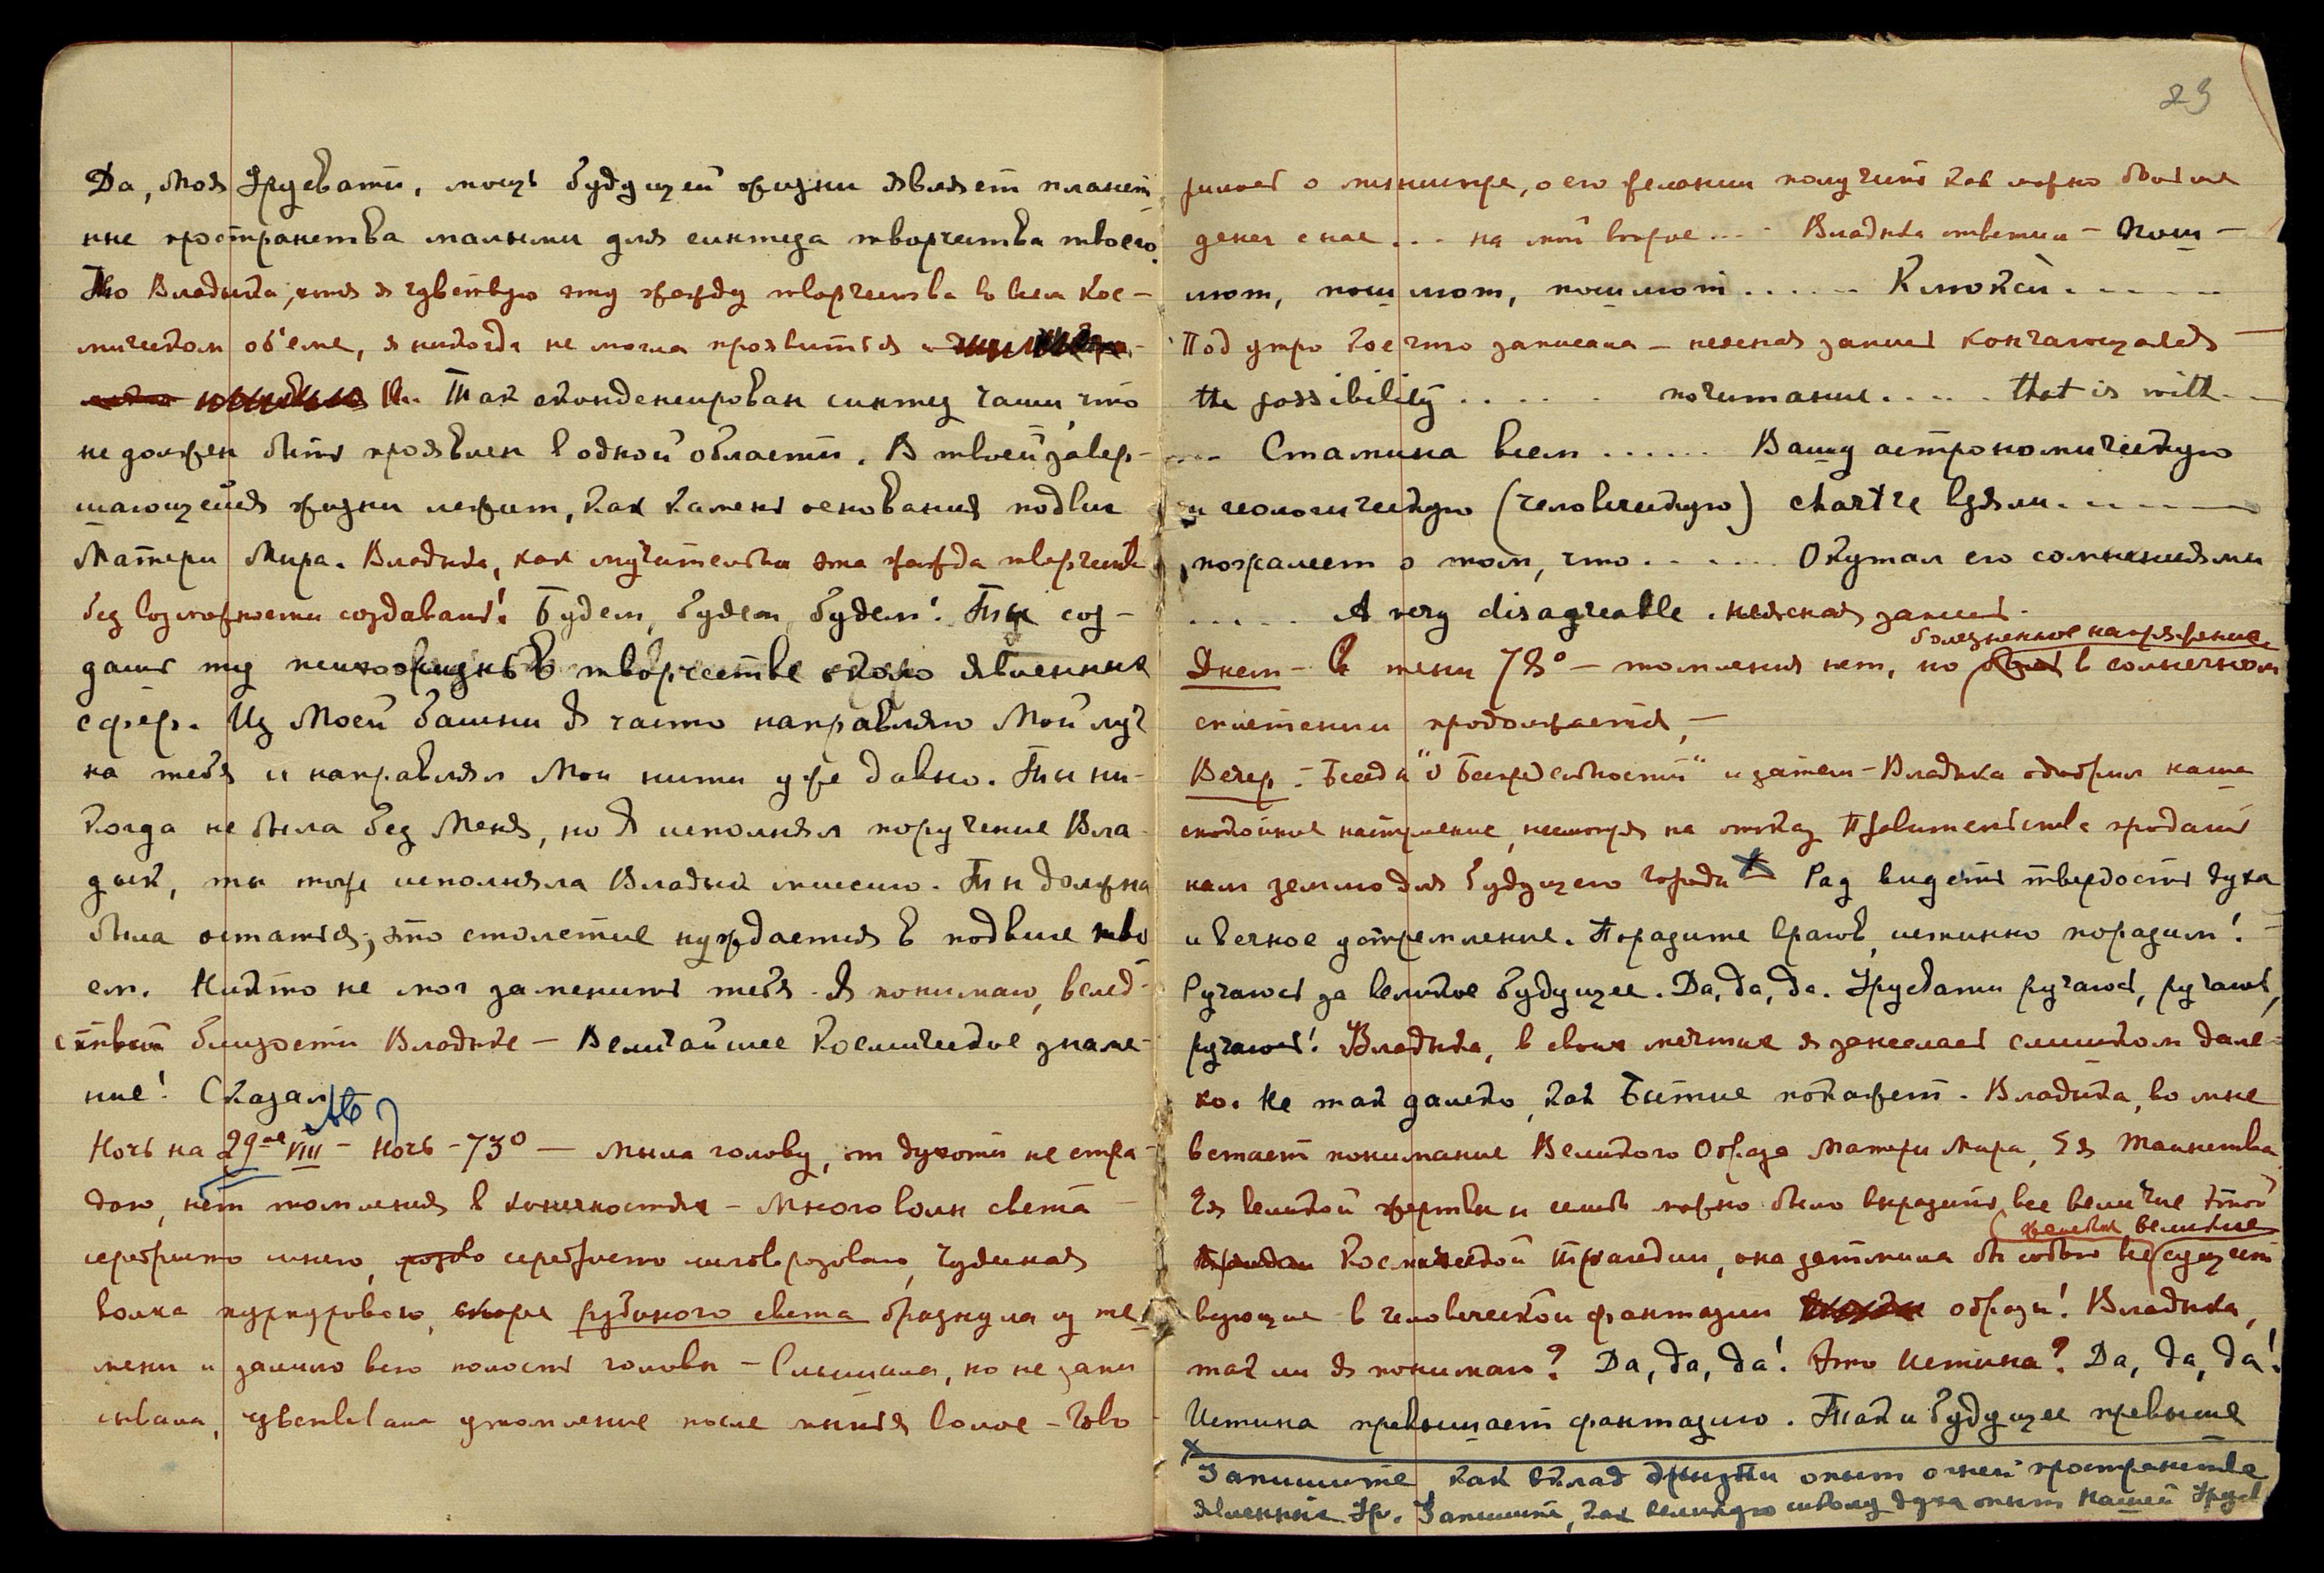 Да, Моя Урусвати, мощь будущей жизни являет планет
ные пространства малыми для синтеза творчества твоего.
Но Владыка, хотя я чувствую эту жажду творчества во всем кос-
мическом об'еме, я никогда не могла проявиться
Так сконденсирован синтез чаши, что
не должен быть проявлен в одной области. В твоей завер-
шающейся жизни лежит, как камень основания подвиг
Матери Мира. Владыка, как мучительна эта жажда творчества
без возможности создавать! Будем, будем, будем! Ты соз-
дашь ту психожизнь в творчестве около явленных
сфер. Из Моей башни Я часто направляю Мой луч
на тебя и направлял Мои нити уже давно. Ты ни-
когда не была без Меня, но Я исполнял поручение Вла-
дык, ты тоже исполняла Владык миссию. Ты должна
была остаться, это столетие нуждается в подвиге тво
ем. Никто не мог заменить тебя. Я понимаю, вслед-
ствии близости Владыке — Величайшее Космическое знаме-
ние! Сказал
Ночь на 29ое VIII — Ночь — 73° — мыла голову, от духоты не стра-
даю, нет томления в конечностях — Много волн света —
серебристо синего, серебристо лилово розового, чудесная
волна пурпурового, скорее рубиного света брызнула из те-
мени и залило всю полость головы — Слышала, но не запи
сывала, чувствовала утомление после мытья волос — Гово-
23
рилось о министре, о его желании получить как можно больше
денег с нас ... на мой вопрос ... Владыка ответил — Пош —
лют, пошлют, пошлют ...... Клюкси ......
Под утро кое что записала — неясная запись кончающаяся —
the possibility ...... почитание ..... that is with ...
.... Сталина всем ...... Вашу астрономическую
и геологическую (человеческую) chartre взяли ......
пожалеет о том, что ...... Окутал его сомнениями
..... A very disagreable . неясная запись.
Днем — в тени 78° — томления нет, но болезненное напряжение в солнечном
сплетении продолжается, —
Вечер — Беседа "о Беспредельности" и затем — Владыка одобрил наше
спокойное наступление, несмотря на отказ Правительства продать
нам землю для будущего города x Рад видеть твердость духа
и вечное устремление. Поразите врагов, истинно поразим! —
Ручаюсь за великое будущее. Да, да, да. Урусвати ручаюсь, ручаюсь,
ручаюсь! Владыка, в своих мечтах я занеслась слишком дале-
ко. Не так далеко, как Бытие покажет. Владыка, во мне
встает понимание Великого Образа Матери Мира, Ея Таинства
Ея великой жертвы и если бы можно было выразить все величие этой
Космической трагедии, она затмила бы собою все великие сущест
вующие в человеческой фантазии образы! Владыка,
так ли я понимаю? Да, да, да! Это Истина? Да, да, да!
Истина превышает фантазию. Так и будущее превыше
x Запишите как вклад опыт огней пространства
явленный Ур. Запишите, как великую школу духа опыт Нашей Урусв